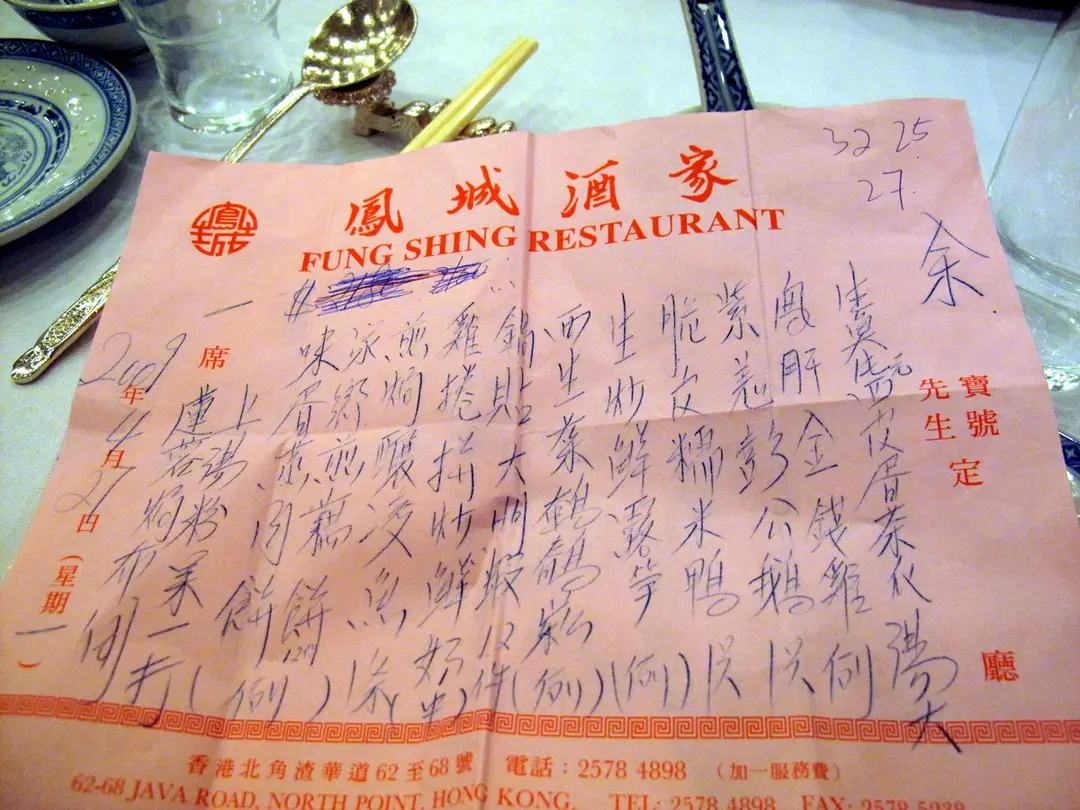 32 25
27
鳳城酒家
FUNG SHING RESTAURANT
余
寶號
先生
定
廳
鳳肝金錢雞 例
紫羌彭公鵝 只
脆皮糯米鴨 只
生炒鮮露笋 (例)
西生菜鵪鶉崧 (例)
鍋貼大明蝦 12件
雞捲拼炒鮮奶 (半)
煎焗釀凌魚 条
家鄉煎藕餅
味香蒸肉餅 (例)
上湯粉果一打
蓮蓉焗布甸
一席
2009年4月27日(星期一)
香港北角渣華道62至68號 電話：2578 4898 （加一服務費）
62-68 JAVA ROAD, NORTH POINT, HONG KONG. TEL: 2578 4898 FAX: 2578 5938